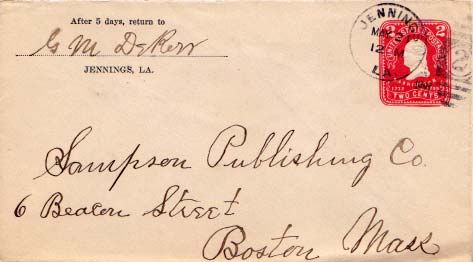 After 5 days, return to
G M DeRor
JENNINGS, LA.
JENNINGS
MAR
12 M
LA.
UNITED STATES POSTAGE
2 2
TWO CENTS
Sampson Publishing Co.
6 Beacon Street
Boston Mass